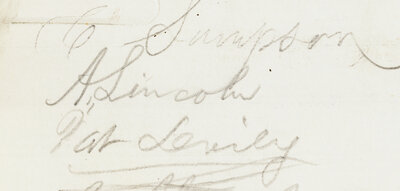 C Simpson
A. Lincoln
Pat Devily